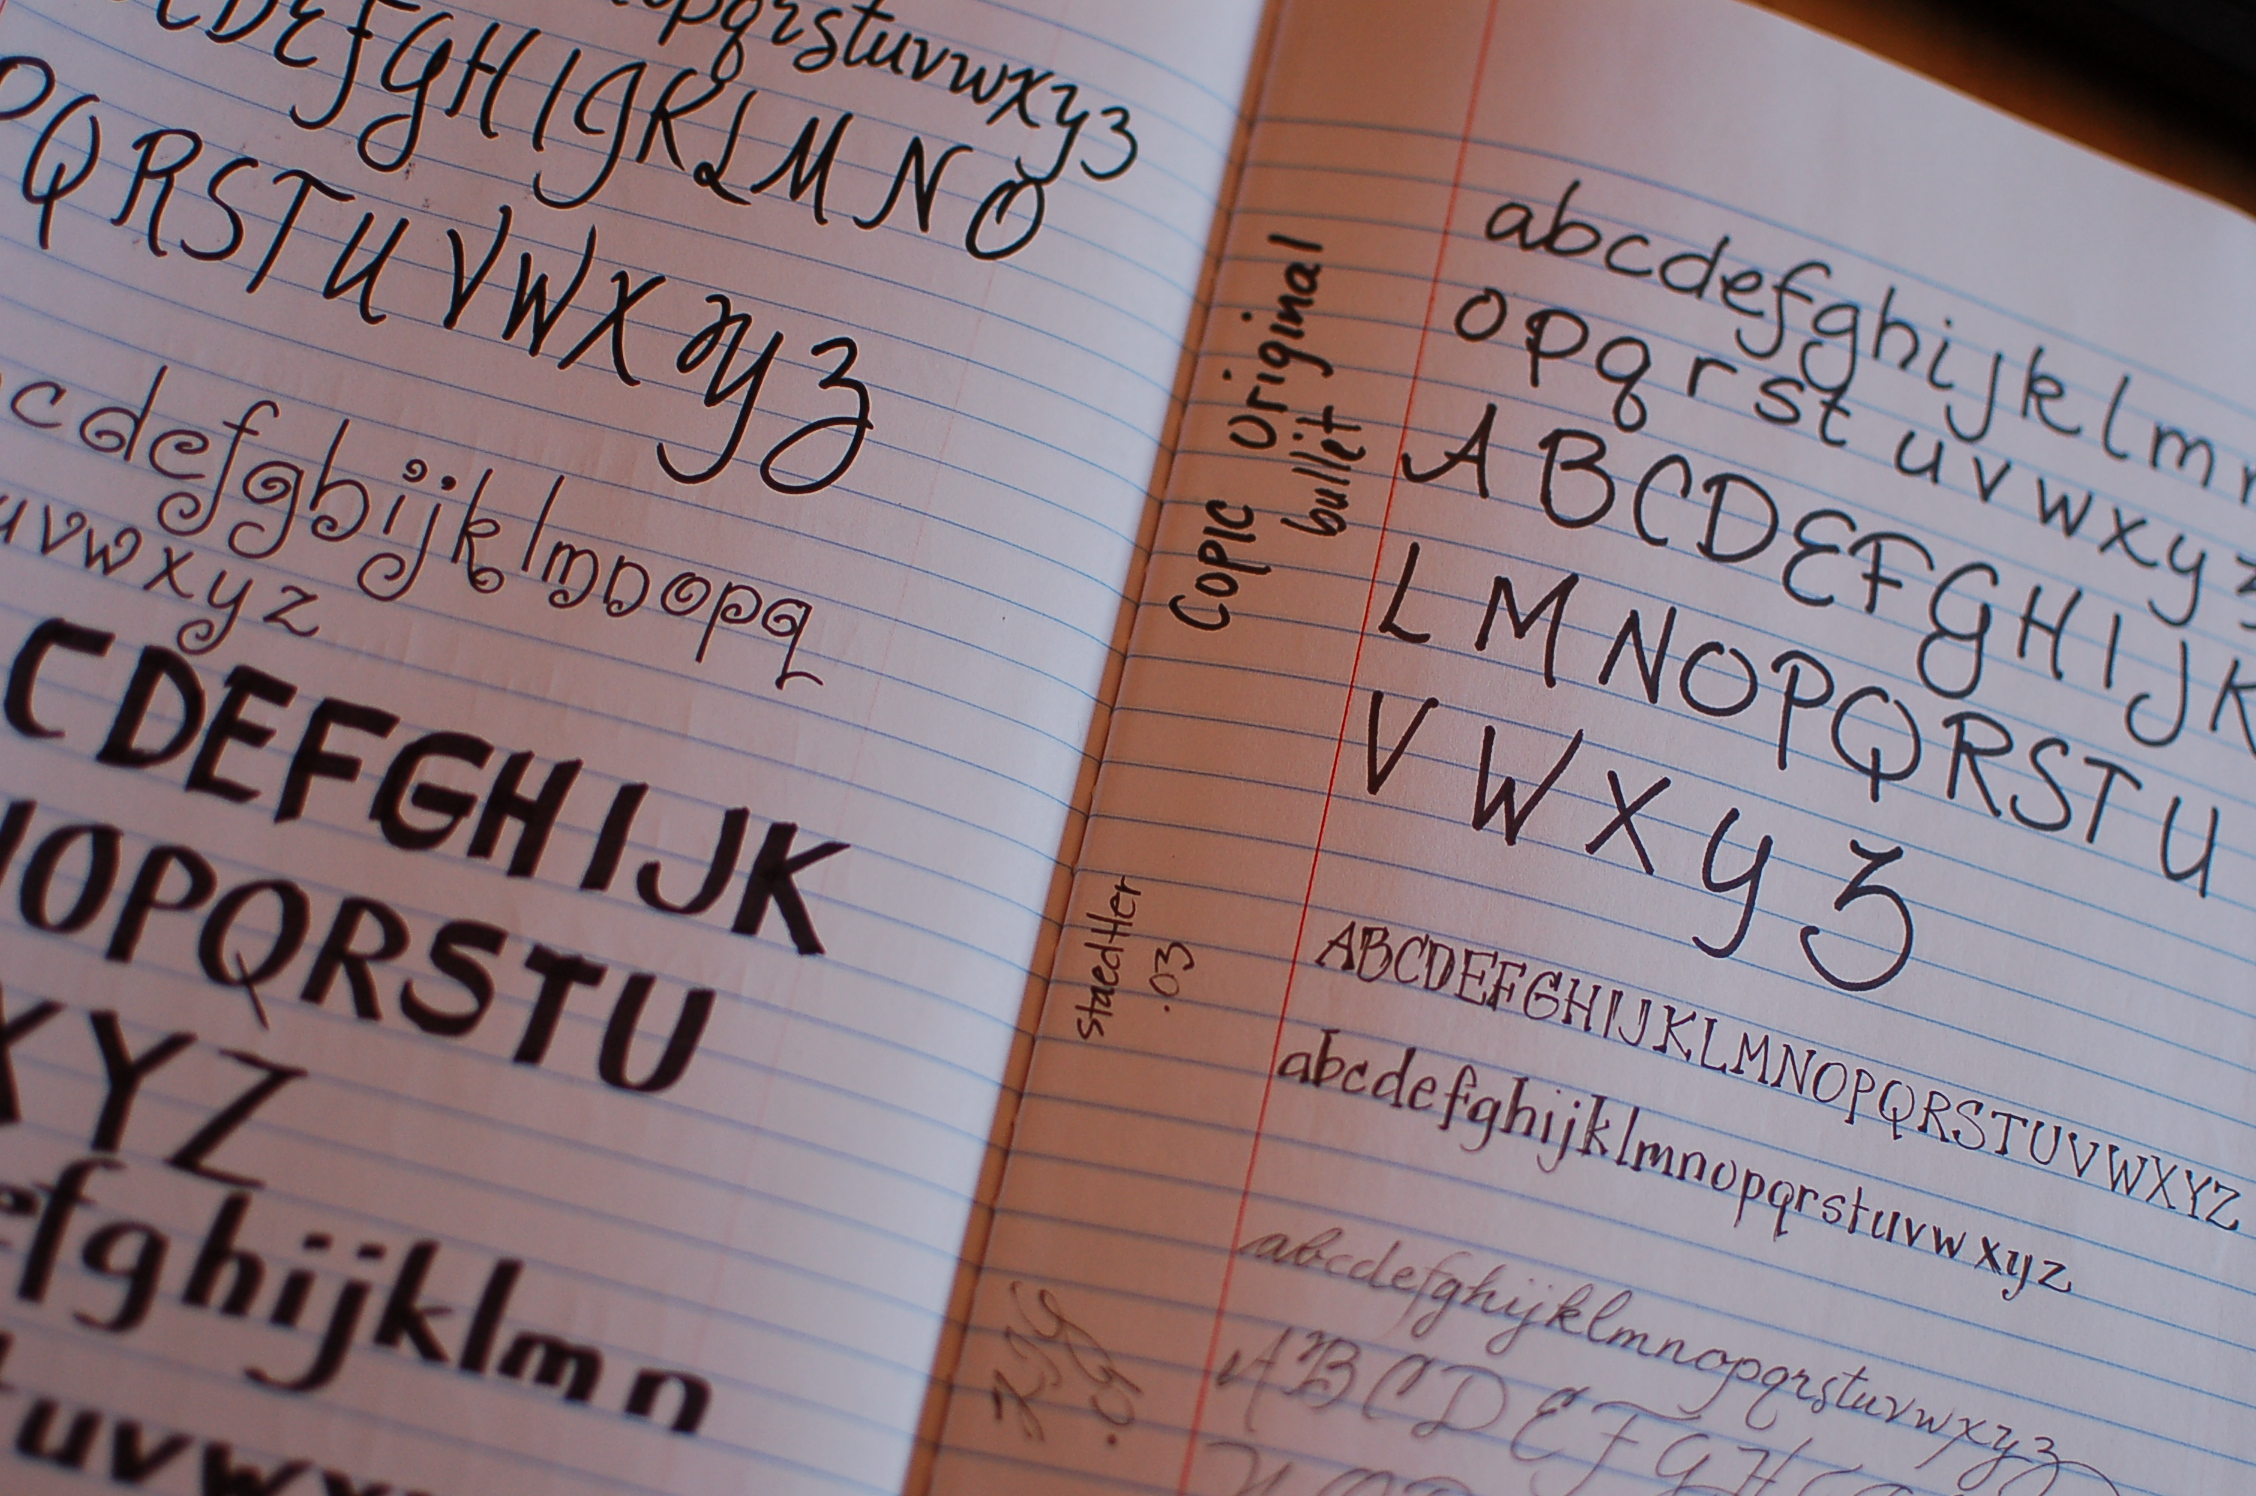 opqrstuvwxyz
CDEFGHIJKLMNO
PQRSTUVWXYZ
cdefghijklmnopq
uvwxyz
CDEFGHIJK
NOPQRSTU
XYZ
efghijklmn
tuvwx
Copic Original
bullet
abcdefghijklmn
opqrstuvwxyz
ABCDEFGHIJK
LMNOPQRSTU
VWXYZ
staedtler
.03
ABCDEFGHIJKLMNOPQRSTUVWXYZ
abcdefghijklmnopqrstuvwxyz
abcdefghijklmnopqrstuvwxyz
ABCDEFGH